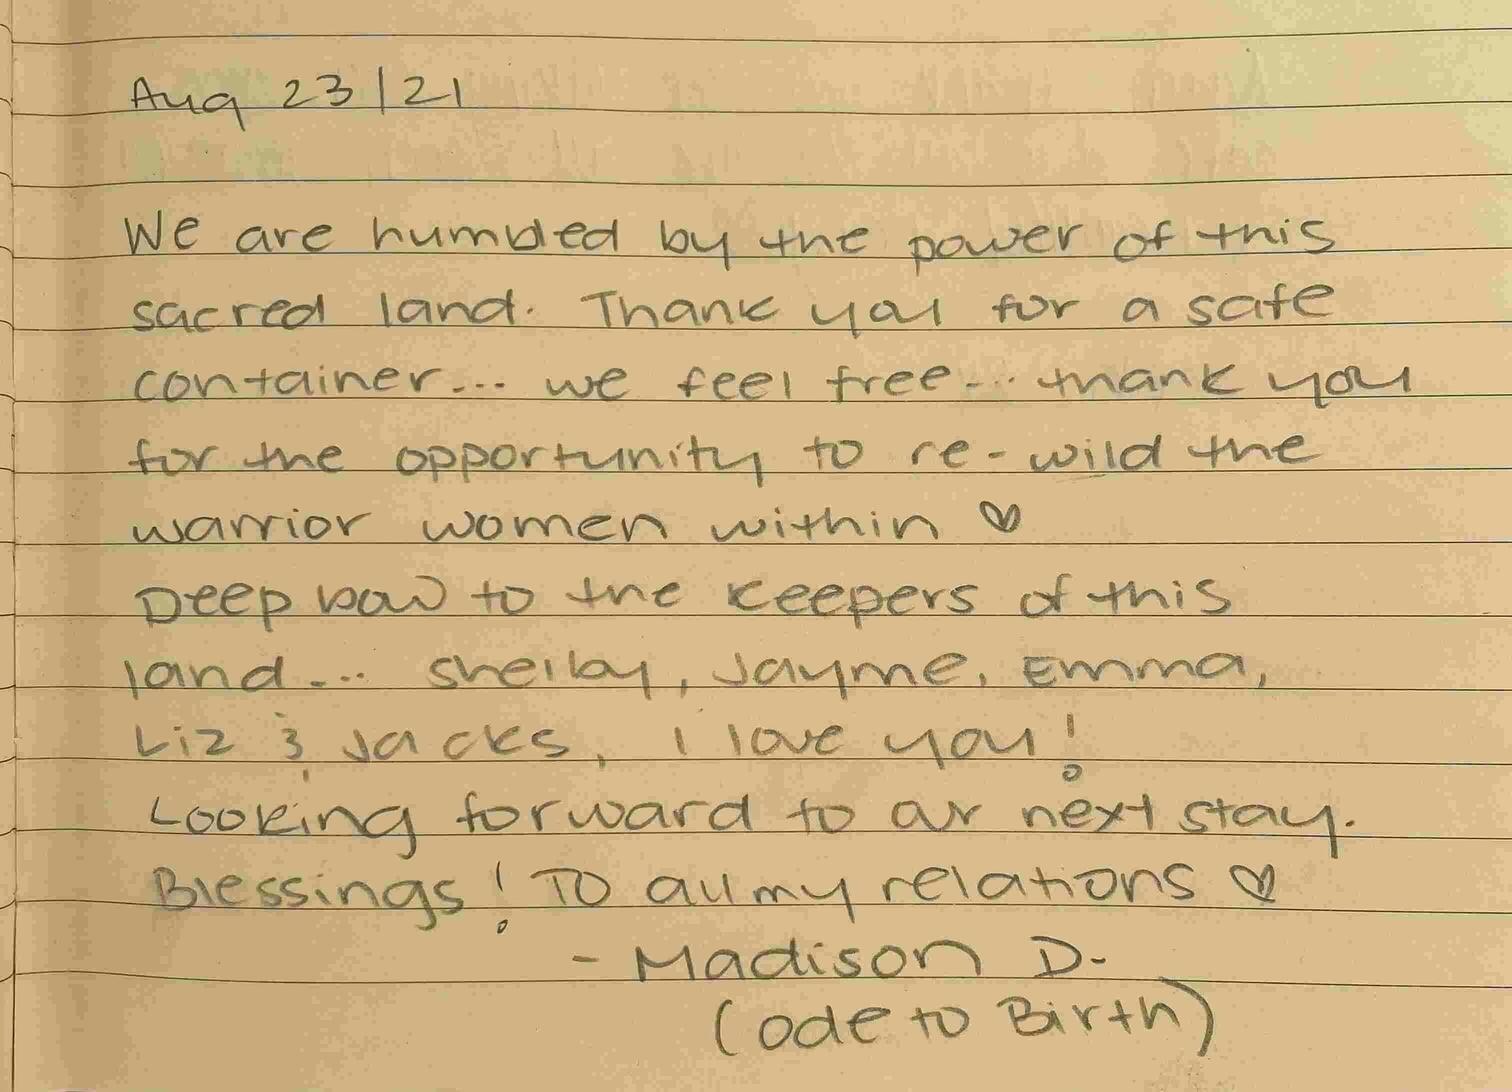 Aug 23/21
We are humbled by the power of this
sacred land. Thank you for a safe
container... we feel free... thank you
for the opportunity to re-wild the
warrior women within ♡
Deep bow to the keepers of this
land... Shelby, Jayme, Emma,
Liz & Jacks, I love you!
Looking forward to our next stay.
Blessings! To all my relations ♡
- Madison D.
(Ode to Birth)